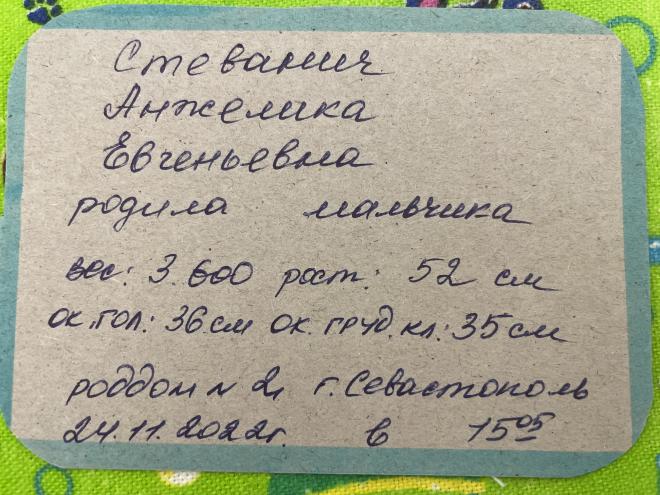 Стеванич
Анжелика
Евгеньевна
родила мальчика
вес: 3.600 рост: 52 см
ок.гол: 36 см ок. груд. кл: 35 см
роддом № 2, г. Севастополь
24.11.2022г. в 15 05